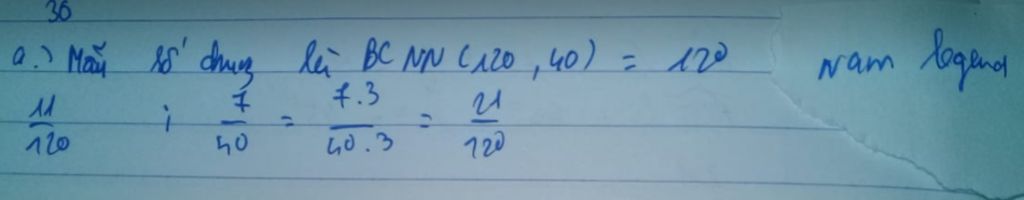 36
a.) Mẫu số chung là BCNN (120, 40) = 120
nam legend
11/120 ; 7/40 = 7.3/40.3 = 21/120